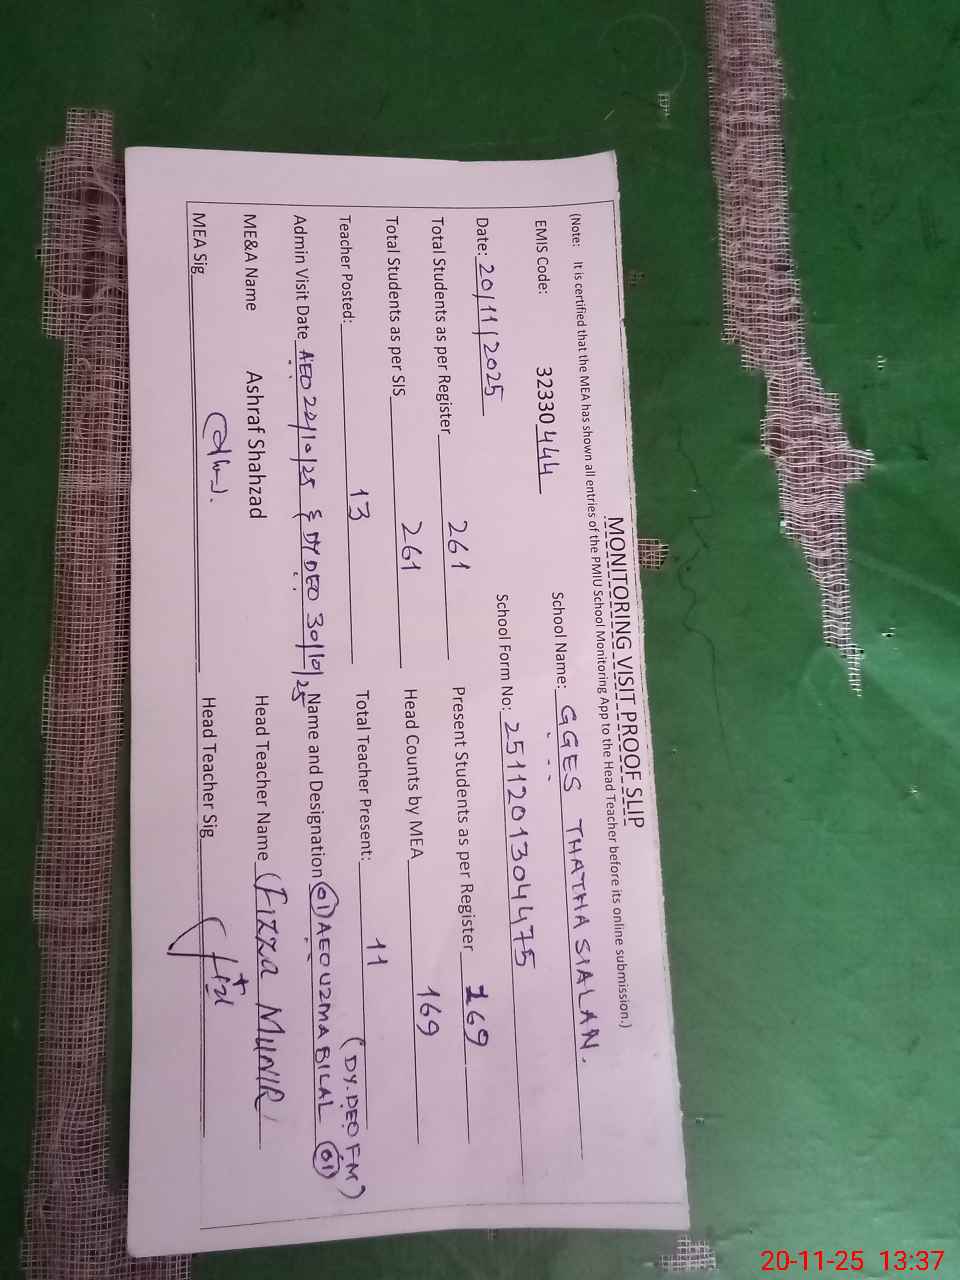 MONITORING VISIT PROOF SLIP
(Note: It is certified that the MEA has shown all entries of the PMIU School Monitoring App to the Head Teacher before its online submission.)
EMIS Code: 32330444 School Name: GGES THATHA SIALAN.
Date: 20/11/2025 School Form No: 2511201304475
Total Students as per Register 261 Present Students as per Register 169
Total Students as per SIS 261 Head Counts by MEA 169
Teacher Posted: 13 Total Teacher Present: 11
(DY.DEO FM)
Admin Visit Date AEO 22/10/25 & DY DEO 30/10/25 Name and Designation (01) AEO UZMA BILAL (01)
ME&A Name Ashraf Shahzad Head Teacher Name (Fizza MUNIR)
MEA Sig Head Teacher Sig
20-11-25 13:37